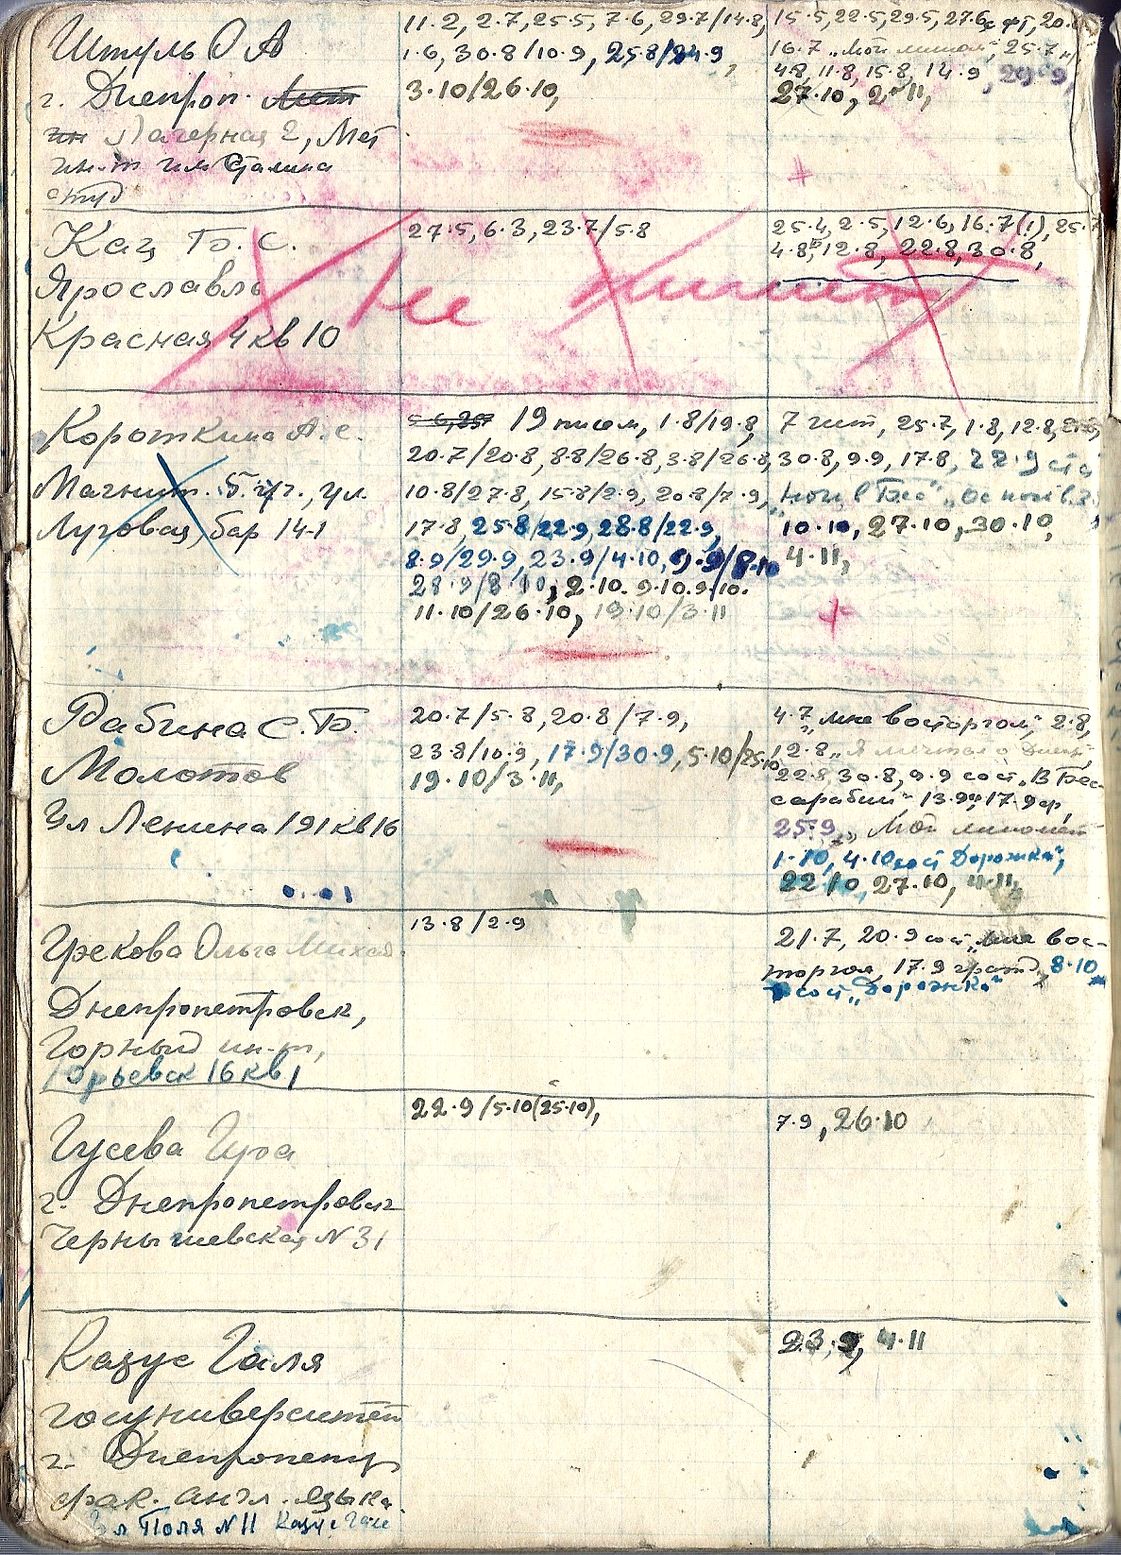 Штуль О А
г. Днепроп. Мет
ин Лагерная 2, Мет
ин-т им Сталина
студ
11·2, 2·7, 25·5, 7·6, 29·7/14·8,
1·6, 30·8/10·9, 25·8/24·9,
3·10/26·10,
15·5, 22·5, 29·5, 27·6,
16·7 „Мой 25·7
4·8, 11·8, 15·8, 14·9, 29·9,
27·10, 2·11,
+
Кац Б. С.
Ярославль
Красная 4 кв 10
27·5, 6·3, 23·7/5·8
25·4, 2·5, 12·6, 16·7(!), 25·7
4·8, 12·8, 22·8, 30·8,
Не пишет
Короткина А. С.
Магнит. 5 уч., ул.
Луговая, бар 14-1
19 писем, 1·8/19·8,
20·7/20·8, 8·8/26·8, 3·8/26·8,
10·8/27·8, 15·8/2·9, 20·8/7·9,
17·8, 25·8/22·9, 28·8/22·9,
8·9/29·9, 23·9/4·10, 9·9/8·10
28·9/8·10, 2·10. 9·10. 9·10.
11·10/26·10, 19·10/3·11
7 шт, 25·7, 1·8, 12·8,
30·8, 9·9, 17·8, 22·9
„Ночь в Бес"
10·10, 27·10, 30·10,
4·11,
+
Рабина С. Б.
Молотов
Ул Ленина 191 кв 16
20·7/5·8, 20·8/7·9,
23·8/10·9, 17·9/30·9, 5·10/25·10
19·10/3·11,
4·7 „мне восторгом", 2·8,
12·8 „Я мечтал о
22·8, 30·8, 9·9 сост „В Бес-
сарабии" 13·9, 17·9
25·9, „Мой миномёт
1·10, 4·10 сост Дорожка",
22·10, 27·10, 4·11,
Грекова Ольга Михай.
Днепропетровск,
Горный ин-т,
Юрьевск 16 кв 1
13·8/2·9
21·7, 20·9 сост „мне вос-
торгом, 17·9 8·10
сост „Дорожка"
Гусева Ира
г. Днепропетровск
Чернышевская N 31
22·9/5·10(25·10),
7·9, 26·10
Казус Галя
госуниверситет
г. Днепропетр
фак. англ. языка.
Поля N 11 Казус Гале
23·9, 4·11